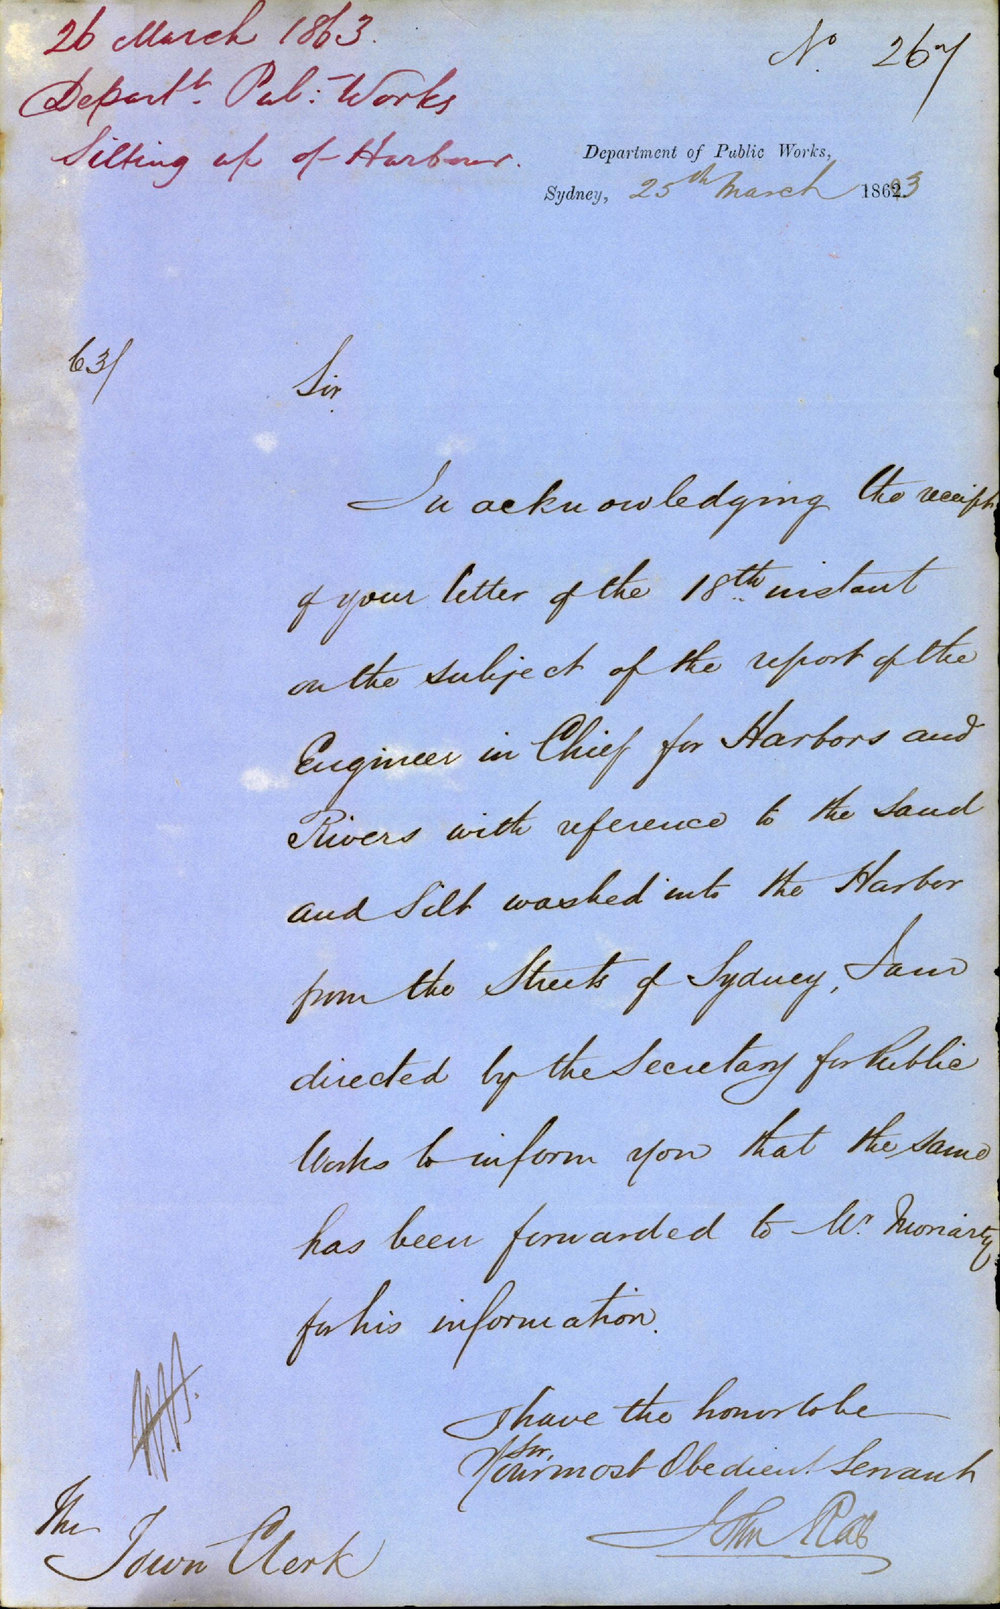 26 March 1863.
Departt. Pub: Works
Silting up of Harbour.
No 267
Department of Public Works,
Sydney, 25th March 1863
63/
Sir
In acknowledging the receipt
of your letter of the 18th instant
on the subject of the report of the
Engineer in Chief for Harbors and
Rivers with reference to the Sand
and Silt washed into the Harbor
from the Streets of Sydney, I am
directed by the Secretary for Public
Works to inform you that the same
has been forwarded to Mr. Moriarty
for his information.
I have the honor to be
Sir,
Your most Obedient Servant
John Rae
The
Town Clerk